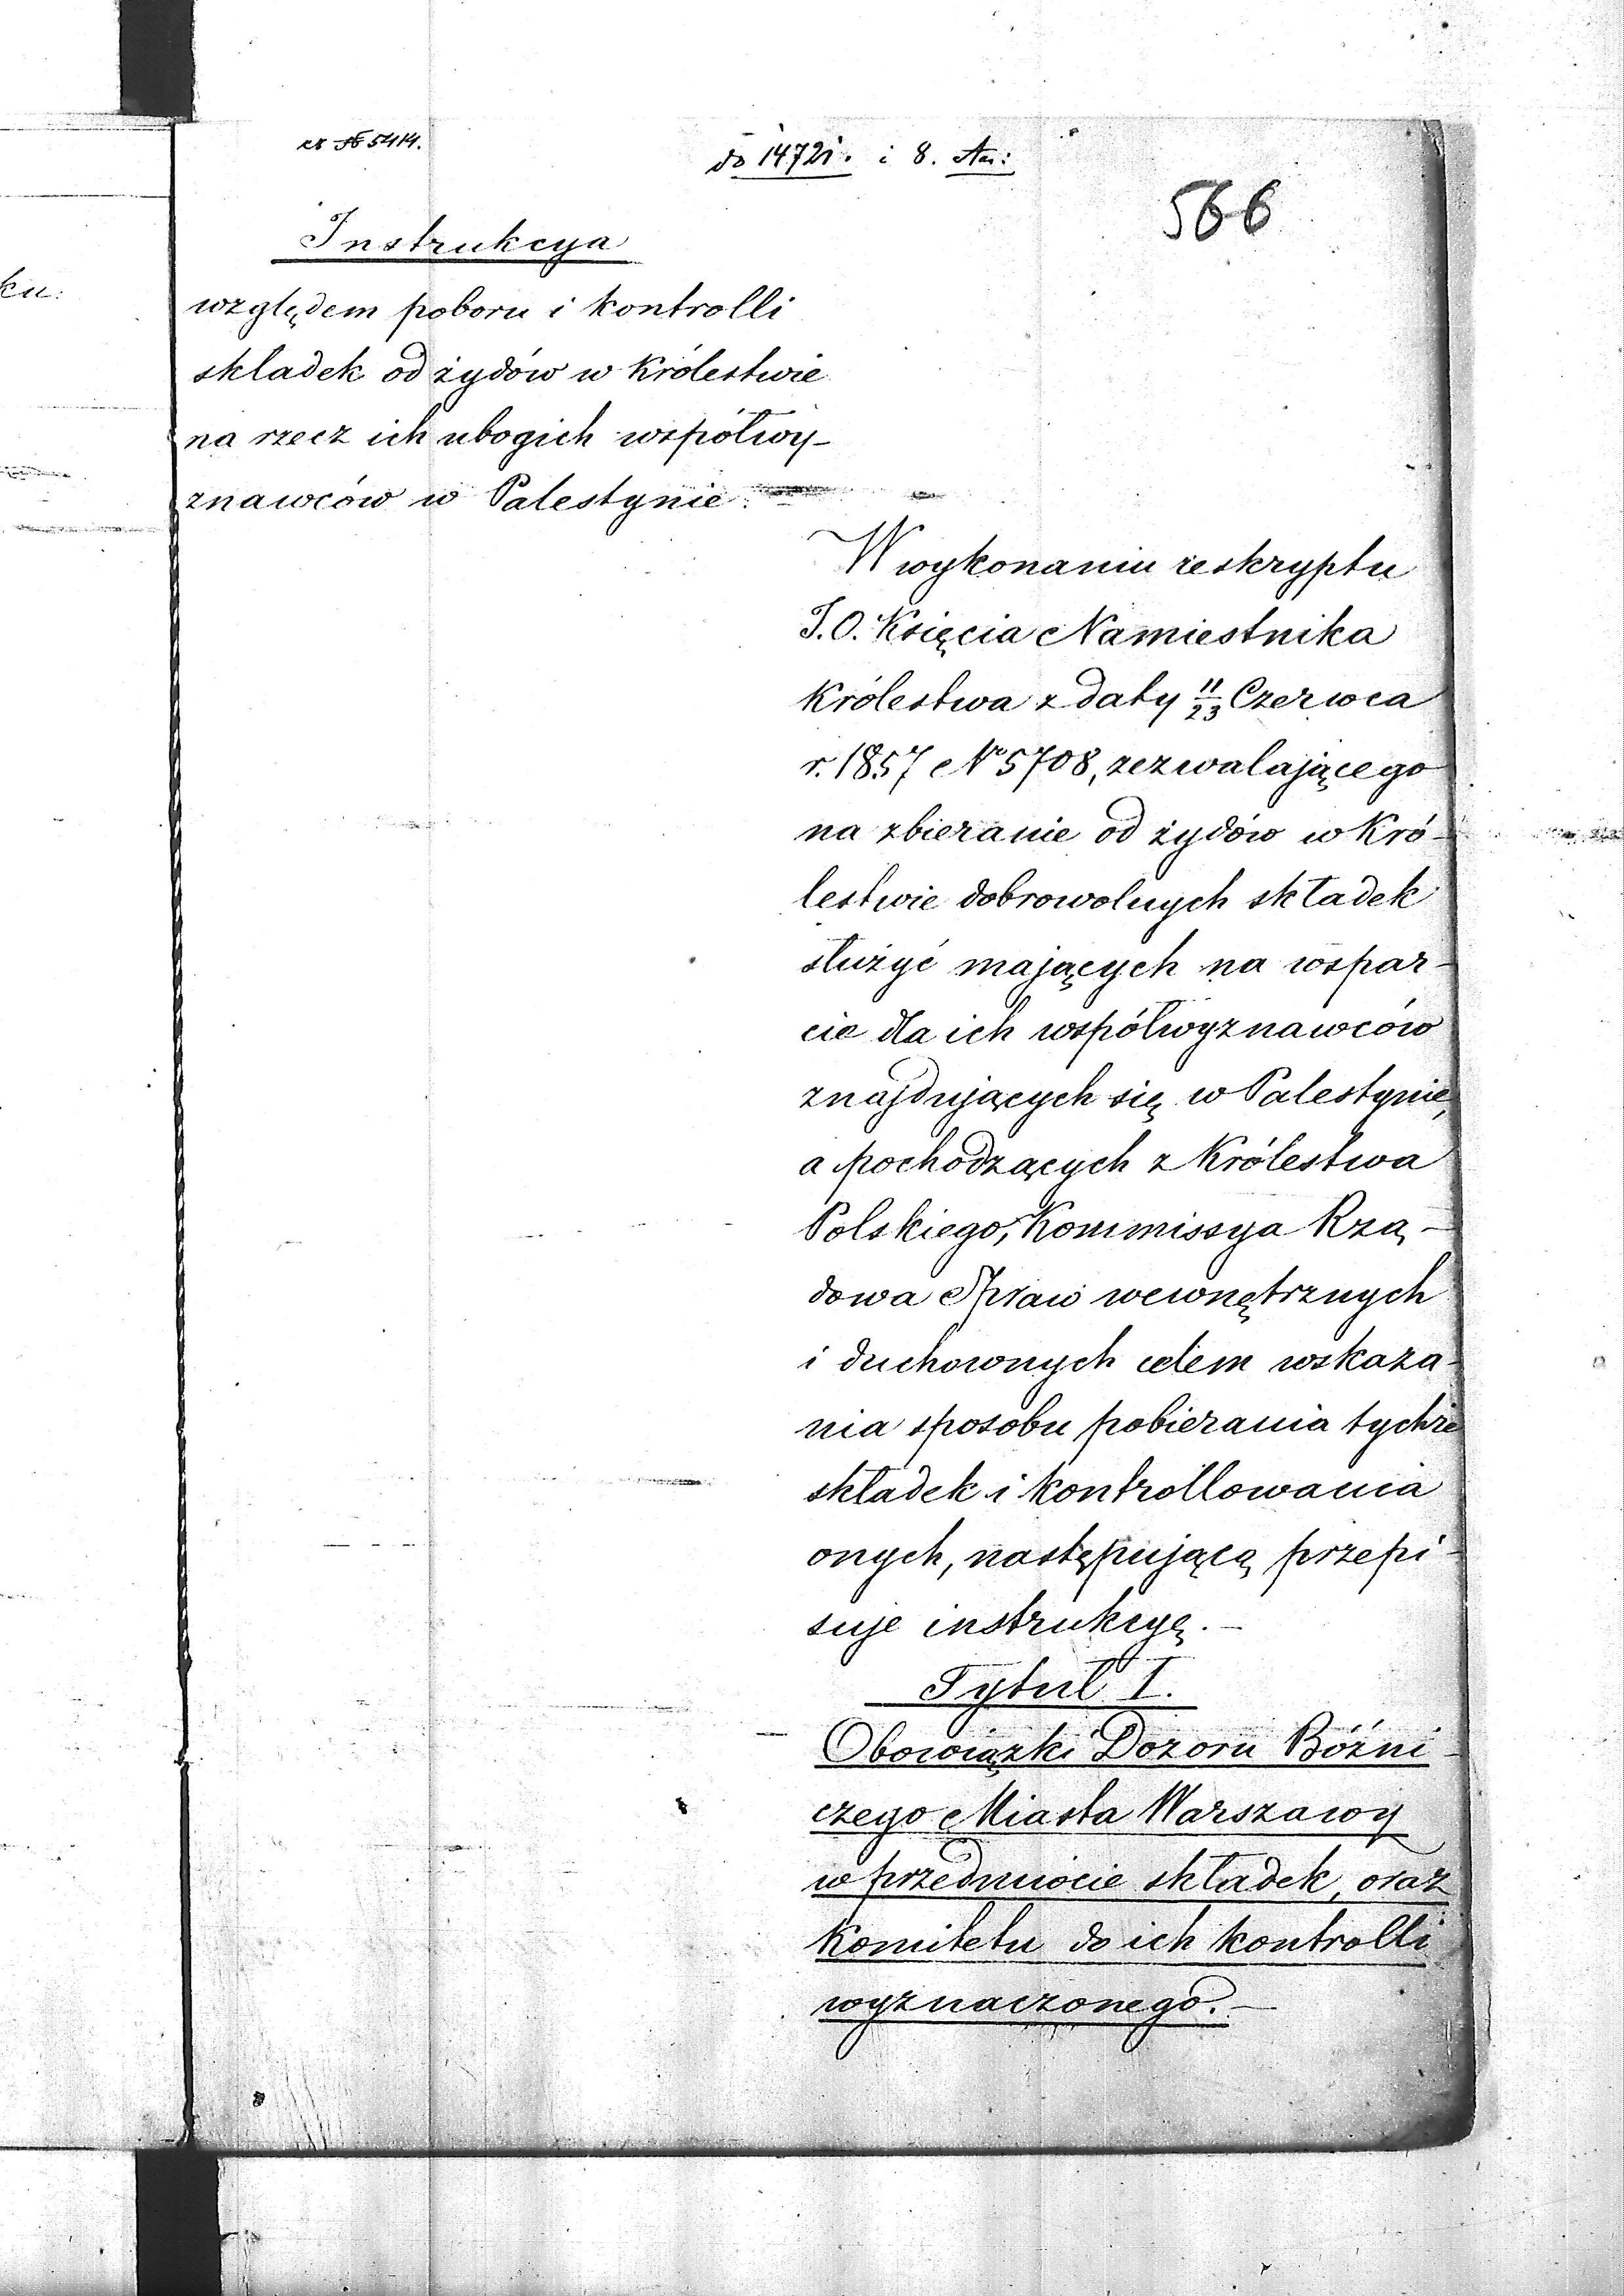 ku:
№ 5414.
do 14721. i 8.
566
Instrukcya
względem poboru i kontrolli
składek od żydów w Królestwie
na rzecz ich ubogich współwy-
znawców w Palestynie.
W wykonaniu reskryptu
J.O. Księcia Namiestnika
Królestwa z daty 11/23 Czerwca
r. 1857 N° 5708, zezwalającego
na zbieranie od żydów w Kró-
lestwie dobrowolnych składek
służyć mających na wspar-
cie dla ich współwyznawców
znajdujących się w Palestynie,
a pochodzących z Królestwa
Polskiego, Kommissya Rzą-
dowa Spraw wewnętrznych
i duchownych celem wskaza-
nia sposobu pobierania tychże
składek i kontrollowania
onych, następującą przepi-
suje instrukcyę.-
Tytuł I.
Obowiązki Dozoru Bóźni-
czego Miasta Warszawy
w przedmiocie składek, oraz
Komitetu do ich kontrolli
wyznaczonego.-